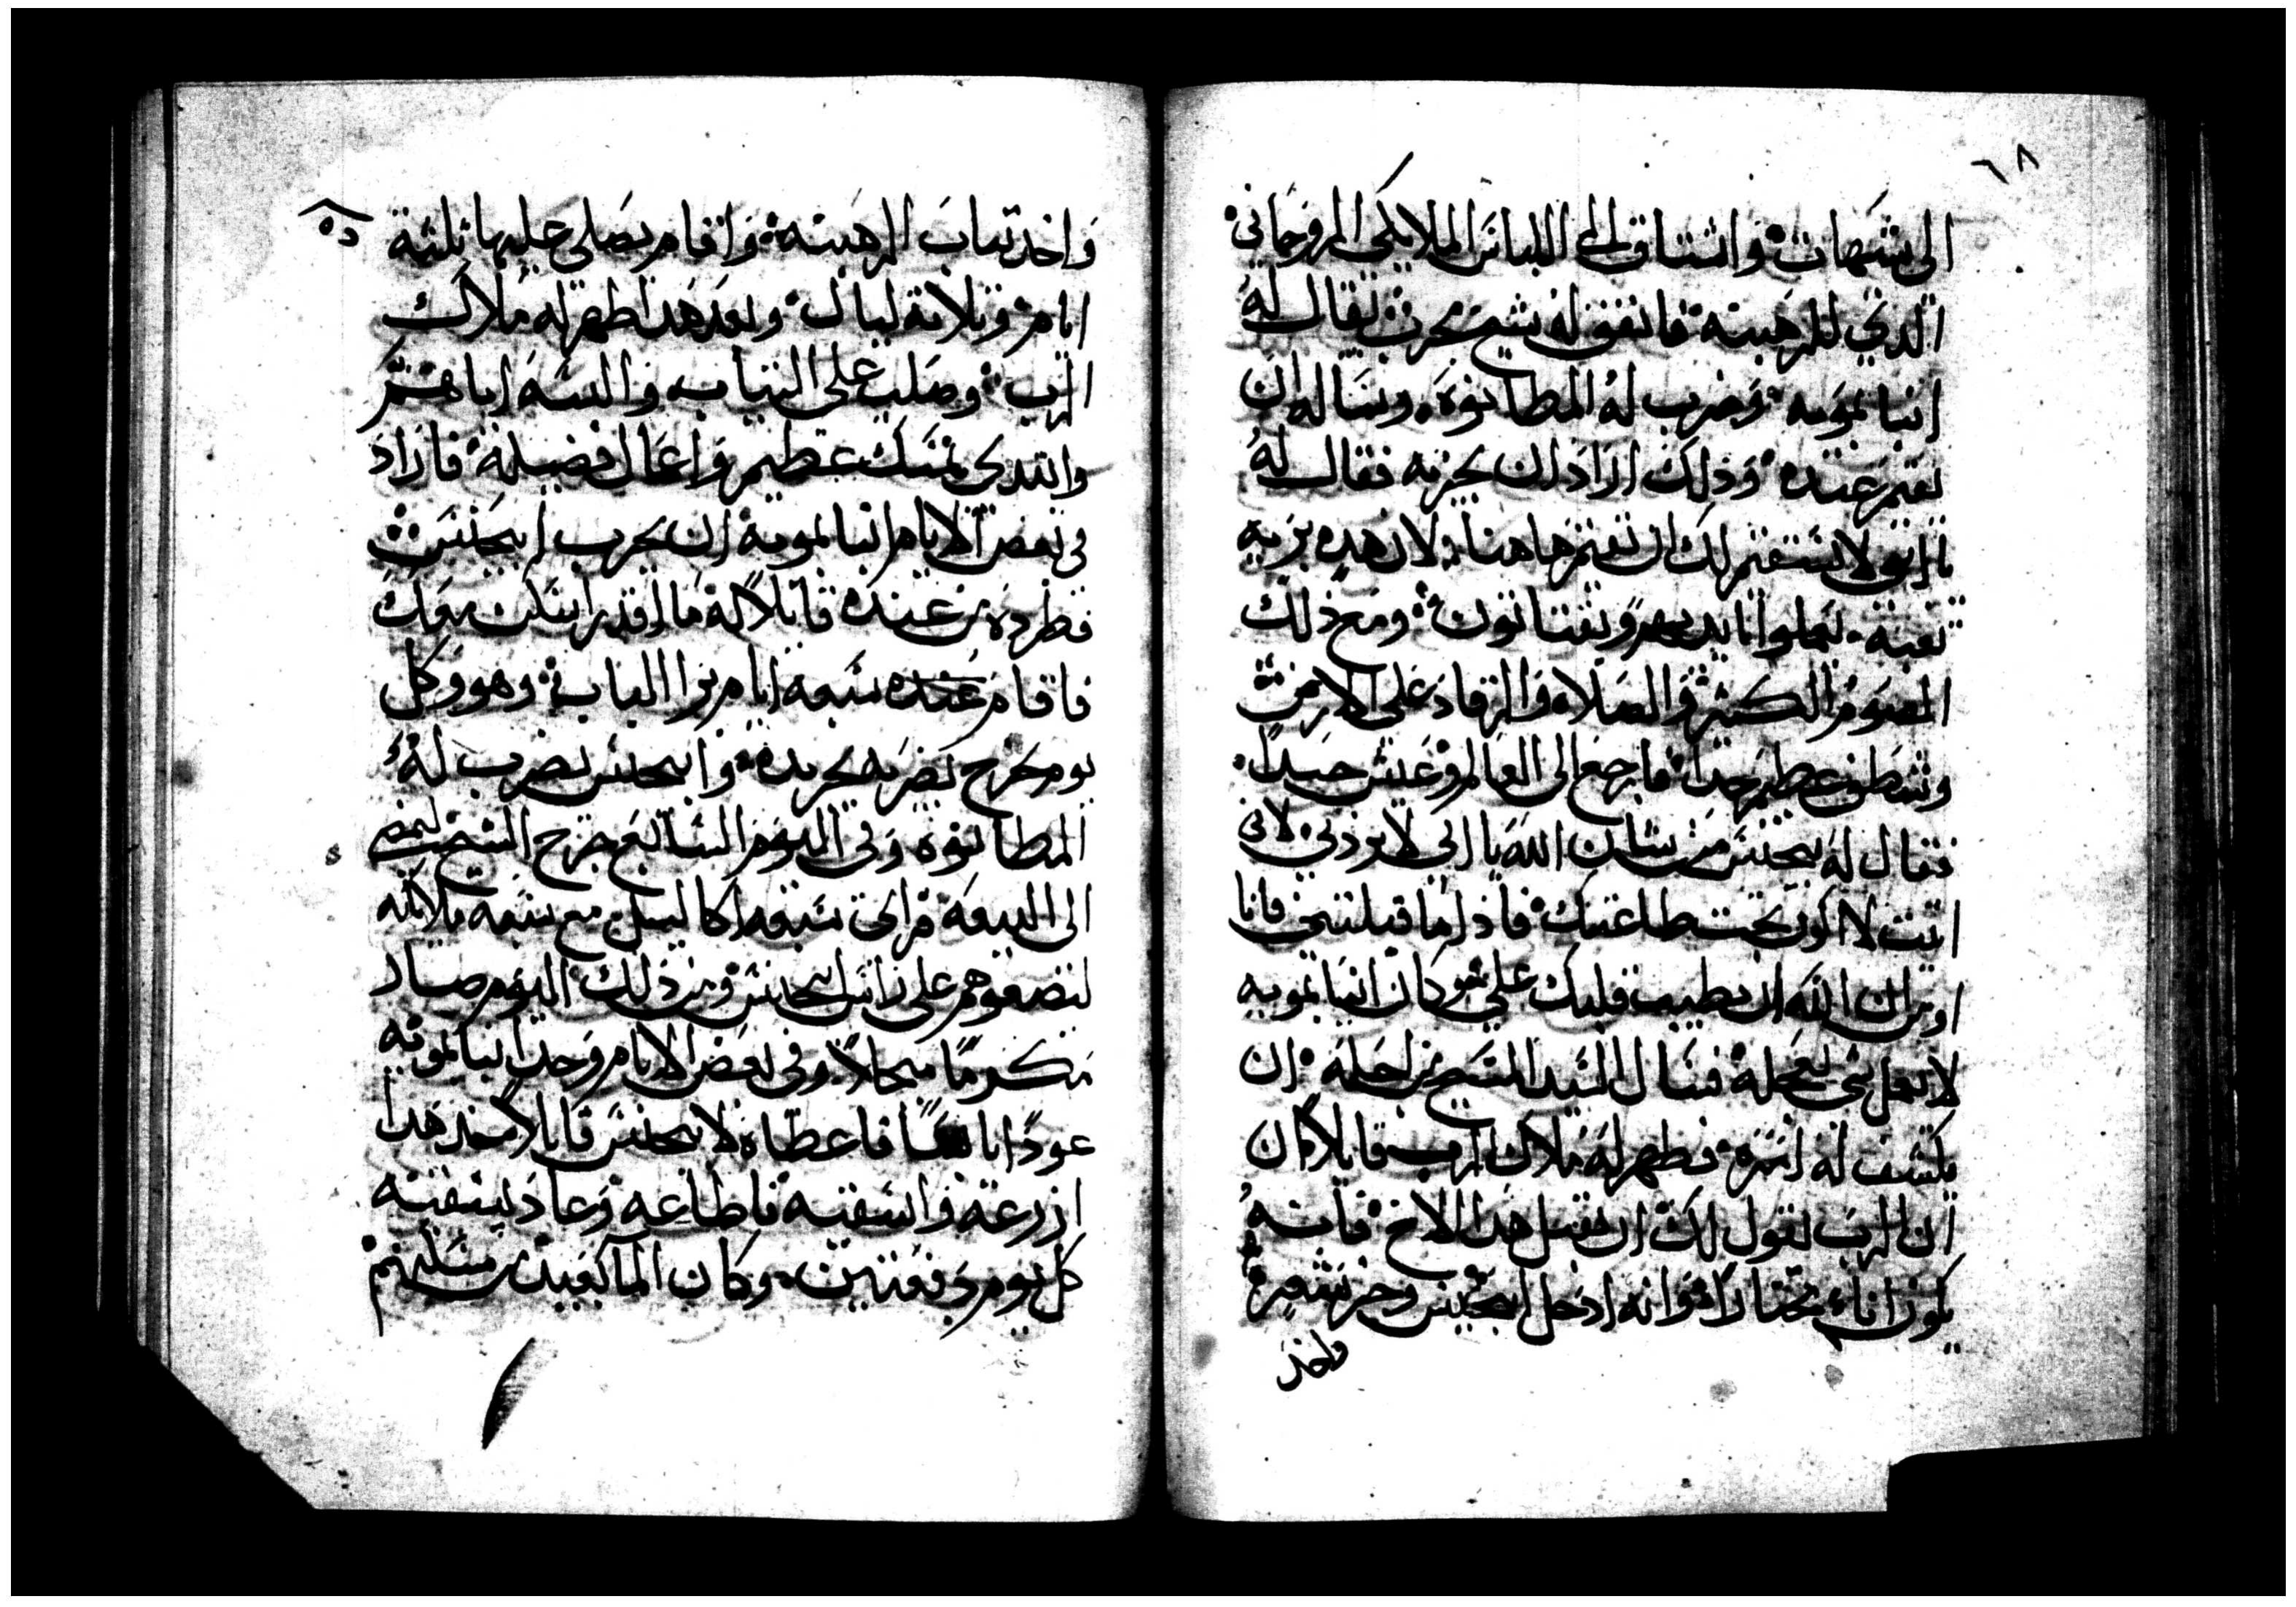 ٦٨
الى شيهات واشتاق الى اللباس الملايكي الروحاني
الذي للرهبنه فاتفق له شيخ مجرب يقال له
انبا بمويه فضرب له المطانوه وساله ان
يقيم عنده وذلك اراد ان يجربه فقال له
يا ابني لا يستقيم لك ان تقيم هاهنا لان هده بريه
تعبه يعملوا بايديهم ويقتاتون ومع ذلك
الصوم الكثير والصلاه والرقاد على الارض
وشظف عظيم جدا فارجع الى العالم وعيش جيدا
فقال له يحنس من شان الله يا ابي لا تردني لاني
اتيت لاكون تحت طاعتك فاذا ما قبلتني فانا
اومن ان الله يطيب قلبك علي وكان انبا بمويه
لا يعمل شي بعجله فسال السيد المسيح من اجله ان
يكشف له امره فظهر له ملاك الرب قايلا
ان الرب يقول لك ان تقبل هدا الاخ فانه
يكون اناء مختارا وانه ادخل ابيحنس وجز شعره
واخد
واخد تياب الرهبنه واقام يصلي عليها ثلثة
ايام وثلاثة ليال وبعد هدا ظهر له ملاك
الرب وصلب على الثياب والبسه اياهم
وابتدى بنسك عظيم واعمال فضيله فاراد
في بعض الايام انبا بمويه ان يجرب ابيحنس
فطرده من عنده قايلا له ما اقدر اسكن معك
فاقام عنده سبعه ايام برا الباب وهو كل
يوم يخرج يضربه بجريده وابيحنس يضرب له
المطانوه وفي اليوم السابع خرج الشيخ ليمضي
الى البيعه فراى سبعه اكاليل مع سبعه ملايكه
ليضعوهم على راس ابيحنس ومن ذلك اليوم صار
مكرما مبجلا وفي بعض الايام وجد انبا بمويه
عودا يابسا فاعطاه لابيحنس قايلا خد هدا
ازرعه واسقيه فاطاعه وعاد يسقيه
كل يوم دفعتين وكان الما بعيد من مسكنهم